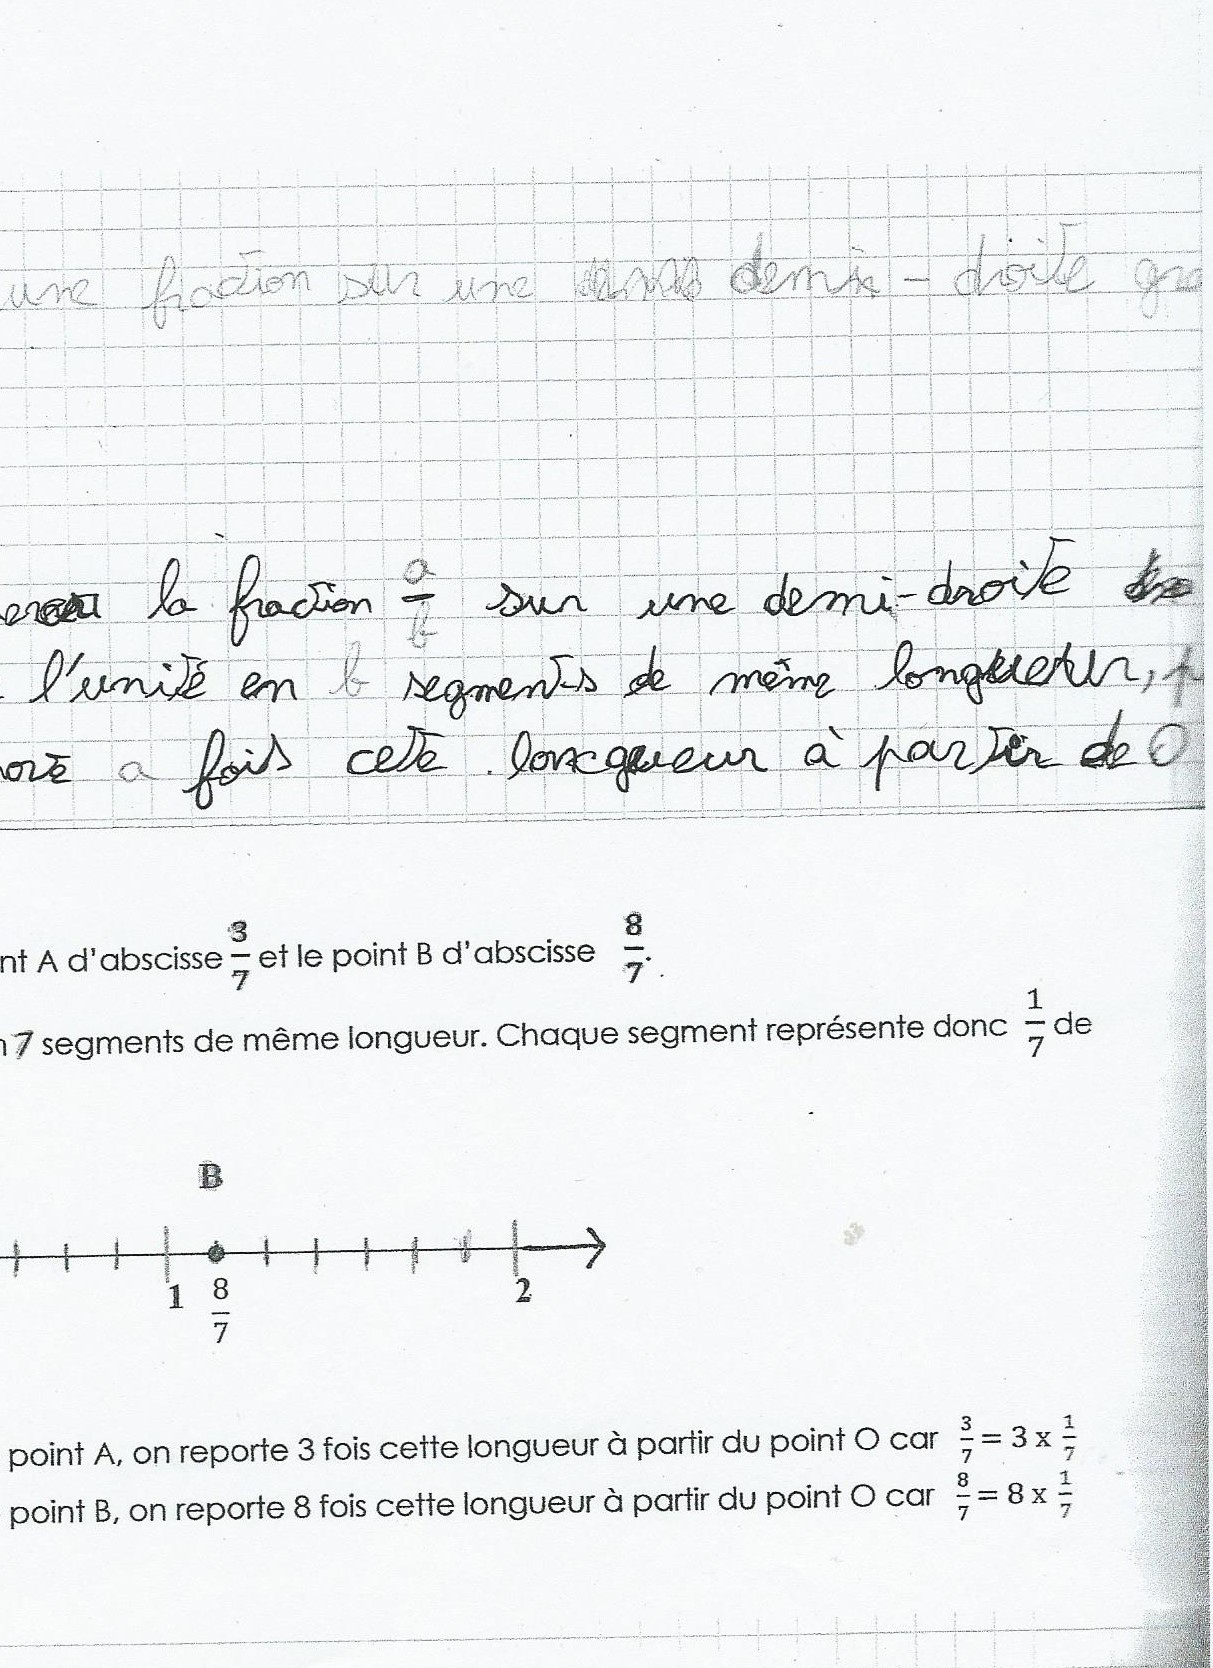 une fraction sur une demi-droite
la fraction a/b sur une demi-droite
l'unité en b segments de même longueur,
a fois cete longueur à partir de O
nt A d'abscisse 3/7 et le point B d'abscisse 8/7.
7 segments de même longueur. Chaque segment représente donc 1/7 de
B
1 8/7 2
point A, on reporte 3 fois cette longueur à partir du point O car 3/7 = 3 x 1/7
point B, on reporte 8 fois cette longueur à partir du point O car 8/7 = 8 x 1/7